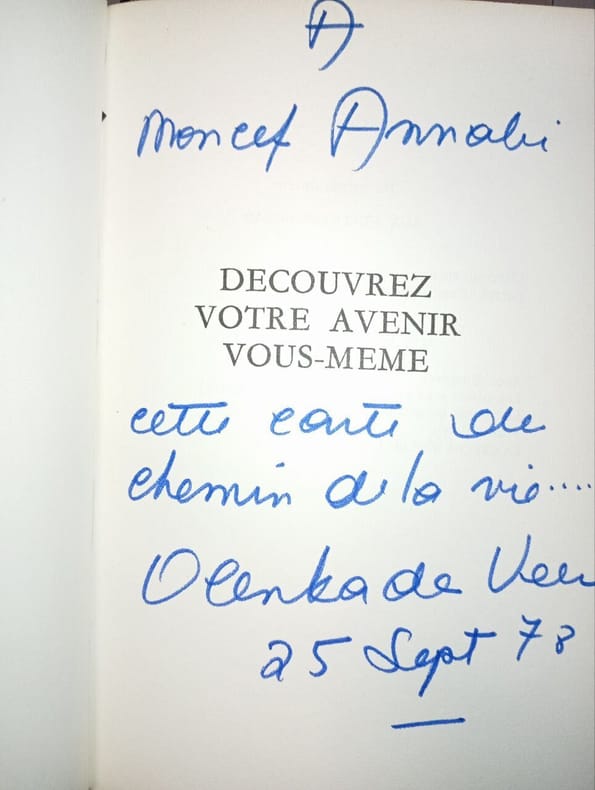 A
Moncef Annabi
DECOUVREZ
VOTRE AVENIR
VOUS-MEME
cette carte de
chemin de la vie....
Olenka de Veer
25 Sept 78